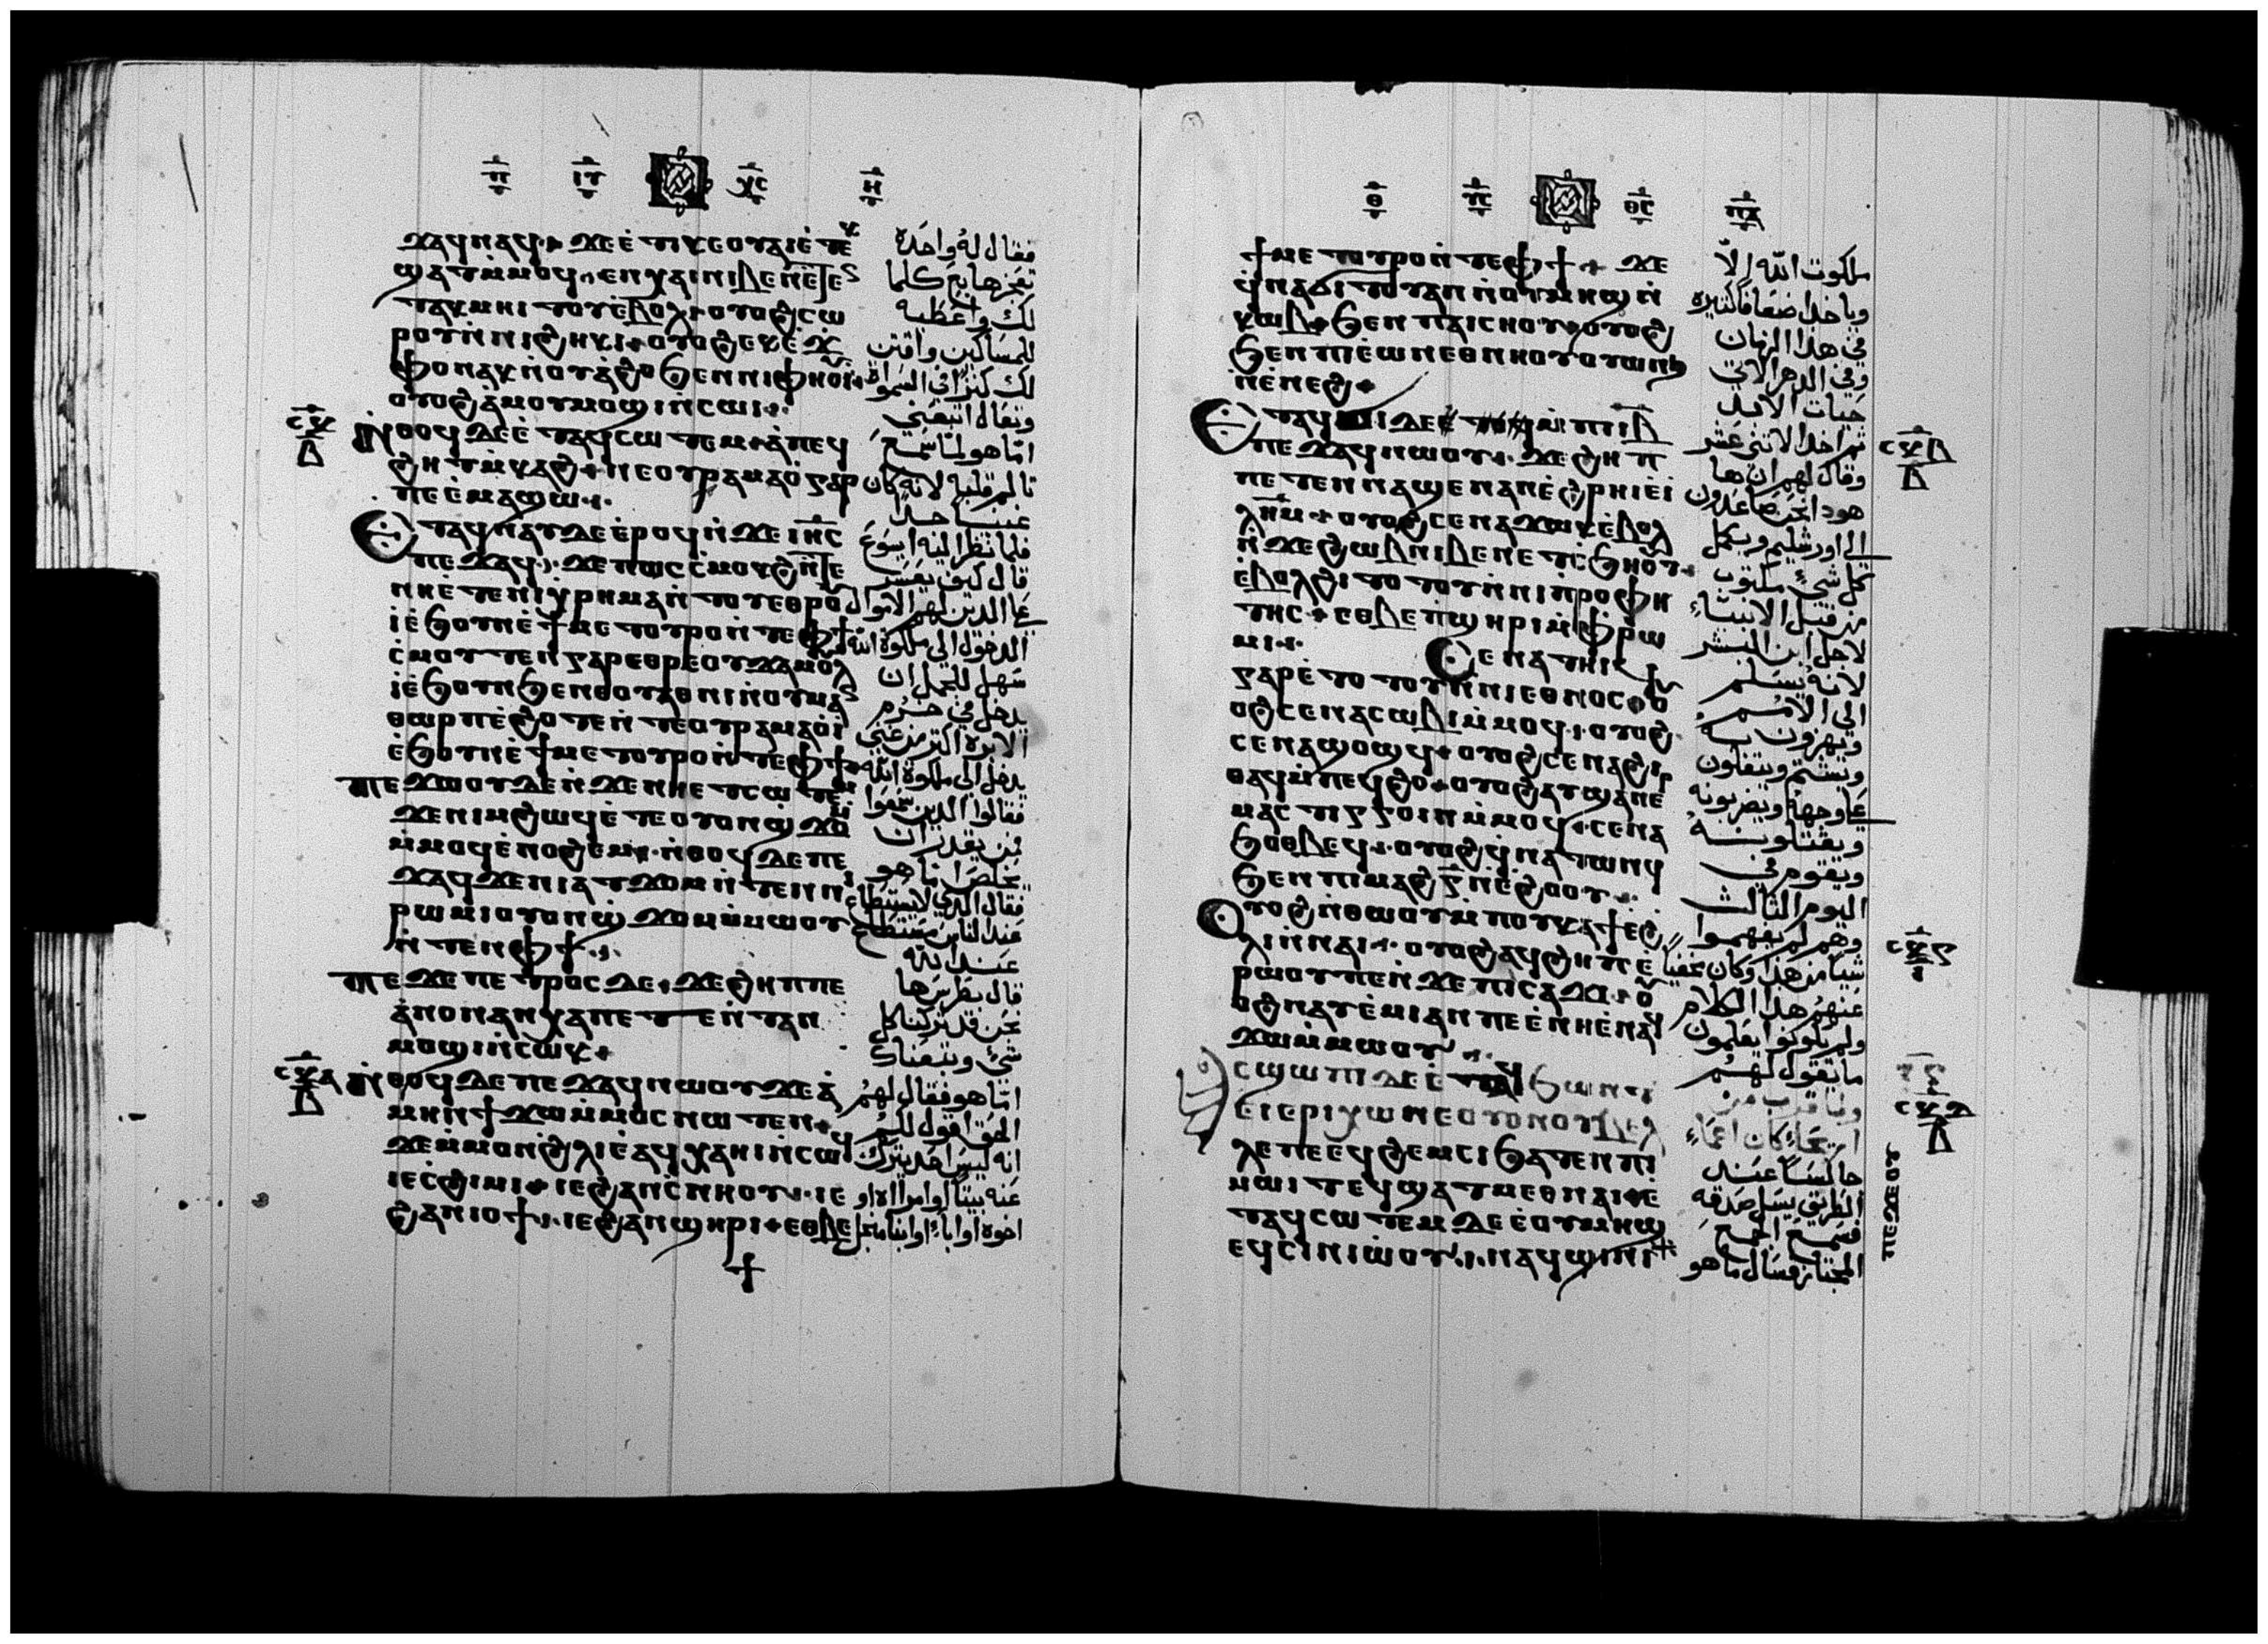 ϫⲁϥⲛⲁϥ ϫⲉ ⲉ̇ⲧⲓⲕⲉⲟⲩⲁⲓ ⲉ̇ⲧⲉⲕ
ϣⲁⲧⲙ̇ⲙⲟϥ ⲉⲛⲭⲁⲓ ⲛⲓⲃⲉⲛ ⲉ̇ⲧⲉ
ⲛ̇ⲧⲁⲕ ⲙⲏⲓⲧⲟⲩ ⲉ̇ⲃⲟⲗ ⲟⲩⲟϩ ⲥⲱ
ⲣⲟⲩ ⲛ̇ⲛⲓϩⲏⲕⲓ ⲟⲩⲟϩ ⲉⲕⲉ̇ϫ
ⲫⲟ ⲛⲁⲕ ⲛ̇ⲟⲩⲁ̇ϩⲟ ϧⲉⲛ ⲛⲓⲫⲏⲟⲩⲓ̇
ⲟⲩⲟϩ ⲁ̇ⲙⲟⲩ ⲙⲟϣⲓ ⲛ̇ⲥⲱⲓ
ⲛ̇ⲑⲟϥ ⲇⲉ ⲉ̇ⲧⲁϥⲥⲱⲧⲉⲙ ⲁ̇ ⲡⲉϥ
ϩⲏⲧ ⲙ̇ⲕⲁϩ ⲛⲉ ⲟⲩⲣⲁⲙⲁⲟ̇ ⲅⲁⲣ
ⲡⲉ ⲉ̇ⲙⲁϣⲱ
ⲉⲧⲁϥⲛⲁⲩ ⲇⲉ ⲉ̇ⲣⲟϥ ⲛ̇ϫⲉ ⲓⲏⲥ
ⲡⲉϫⲁϥ ϫⲉ ⲡⲱⲥ ⲥ̇ⲙⲟⲕϩ ⲛ̇ⲧⲉ
ⲛⲏ ⲉ̇ⲧⲉ ⲛⲓⲭⲣⲏⲙⲁ ⲛ̇ⲧⲟⲩ ⲉⲑⲣⲟⲩ
ⲓ̇ ⲉ̇ϧⲟⲩⲛ ⲉ̇ϯⲙⲉⲧⲟⲩⲣⲟ ⲛ̇ⲧⲉ ⲫϯ
ⲥ̇ⲙⲟⲧⲉⲛ ⲅⲁⲣ ⲉⲑⲣⲉ ⲟⲩϫⲁⲙⲟⲩⲗ
ⲓ̇ ⲉ̇ϧⲟⲩⲛ ϧⲉⲛ ⲑⲟⲩⲁⲑⲛⲓ ⲛ̇ⲟⲩⲙⲁⲛ
ⲑⲱⲣⲡ ⲉ̇ϩⲟⲧⲉ ⲛ̇ⲧⲉ ⲟⲩⲣⲁⲙⲁⲟ̇ ⲓ̇
ⲉ̇ϧⲟⲩⲛ ⲉ̇ϯⲙⲉⲧⲟⲩⲣⲟ ⲛ̇ⲧⲉ ⲫϯ
ⲡⲉϫⲱⲟⲩ ⲇⲉ ⲛ̇ϫⲉ ⲛⲏ ⲉⲧⲥⲱⲧⲉⲙ
ϫⲉ ⲛⲓⲙ ϩⲱϥ ⲉ̇ⲧⲉ ⲟⲩⲟⲛ ϣ̇ϫⲟⲙ
ⲙ̇ⲙⲟϥ ⲉ̇ⲛⲟϩⲉⲙ ⲛ̇ⲑⲟϥ ⲇⲉ ⲡⲉ
ϫⲁϥ ϫⲉ ⲛⲓⲁⲧϫⲟⲙ ⲛ̇ⲧⲉⲛ ⲛⲓ
ⲣⲱⲙⲓ ⲟⲩⲟⲛ ϣ̇ϫⲟⲙ ⲙ̇ⲙⲱⲟⲩ
ⲛ̇ⲧⲉⲛ ⲫϯ
ⲡⲉϫⲉ ⲡⲉⲧⲣⲟⲥ ⲇⲉ ϫⲉ ϩⲏⲡⲡⲉ
ⲁ̇ⲛⲟⲛ ⲁⲛⲭⲁ ⲡⲉⲧⲉⲛ̇ⲧⲁⲛ
ⲙⲟϣⲓ ⲛ̇ⲥⲱⲕ
ⲛ̇ⲑⲟϥ ⲇⲉ ⲡⲉϫⲁϥ ⲛⲱⲟⲩ ϫⲉ ⲁ̇
ⲙⲏⲛ ϯϫⲱ ⲙ̇ⲙⲟⲥ ⲛⲱⲧⲉⲛ
ϫⲉ ⲙ̇ⲙⲟⲛ ϩ̇ⲗⲓ ⲉ̇ⲁϥⲭⲁ ⲏⲓ ⲛ̇ⲥⲱϥ
ⲓⲉ ⲥ̇ϩⲓⲙⲓ ⲓⲉ ϩⲁⲛⲥ̇ⲛⲏⲟⲩ ⲓⲉ
ϩⲁⲛⲓⲟϯ ⲓⲉ ϩⲁⲛϣⲏⲣⲓ ⲉⲑⲃⲉ
فقال له واحدة
تعجزها بع كلما
لك واعطيه
للمساكين واقتن
لك كنزا في السموات
وتعال اتبعني
اما هو لما سمع
تالم قلبه لانه كان
غنيا جدا
فلما نظر اليه ايسوع
قال كيف يعسر
على الذين لهم الاموال
الدخول الى ملكوة الله
سهل للجمل ان
يدخل في خرم
الابره اكثر من غني
يدخل الى ملكوة الله
فقالوا الذين سمعوا
فمن يقدر ان
يخلص اما هو
فقال الذي لا يستطاع
عند الناس مستطاع
عند الله
قال بطرس ها
نحن قد تركنا كل
شي وتبعناك
اما هو فقال لهم
الحق اقول لكم
انه ليس احد يترك
عنه بيتا او امراه او
اخوه او اباء او ابنا من اجل
ϯⲙⲉⲧⲟⲩⲣⲟ ⲛ̇ⲧⲉ ⲫϯ ϫⲉ
ϥ̇ⲛⲁϭⲓⲧⲟⲩ ⲁⲛ ⲛ̇ⲟⲩⲙⲏϣ ⲛ̇
ⲕⲱⲃ ϧⲉⲛ ⲡⲁⲓⲥⲏⲟⲩ ⲟⲩⲟϩ
ϧⲉⲛ ⲡⲓⲉ̇ⲱⲛ ⲉⲑⲛⲏⲟⲩ ⲟⲩⲱⲛϧ
ⲛ̇ⲉ̇ⲛⲉϩ
ⲉⲧⲁϥϭⲓ ⲇⲉ ⲙ̇ⲡⲓⲓⲃ
ⲡⲉϫⲁϥ ⲛⲱⲟⲩ ϫⲉ ϩⲏⲡ
ⲡⲉ ⲧⲉⲛⲛⲁϣⲉ ⲛⲁⲛ ⲉ̇ϩⲣⲏⲓ ⲉ̇ⲓ
ⲗⲏⲙ ⲟⲩⲟϩ ⲥⲉⲛⲁϫⲱⲕ ⲉ̇ⲃⲟⲗ
ⲛ̇ϫⲉ ϩⲱⲃ ⲛⲓⲃⲉⲛ ⲉⲧⲥ̇ϧⲏⲟⲩⲧ
ⲉ̇ⲃⲟⲗϩⲓⲧⲟⲧⲟⲩ ⲛ̇ⲛⲓⲡ̇ⲣⲟⲫⲏ
ⲧⲏⲥ ⲉⲑⲃⲉ ⲡ̇ϣⲏⲣⲓ ⲙ̇ⲫ̇ⲣⲱ
ⲙⲓ ⲥⲉⲛⲁⲧⲏⲓϥ
ⲅⲁⲣ ⲉ̇ⲧⲟⲧⲟⲩ ⲛ̇ⲛⲓⲉⲑⲛⲟⲥ ⲟⲩ
ⲟϩ ⲥⲉⲛⲁⲥⲱⲃⲓ ⲙ̇ⲙⲟϥ ⲟⲩⲟϩ
ⲥⲉⲛⲁϣⲟϣϥ ⲟⲩⲟϩ ⲥⲉⲛⲁϩⲓ
ⲑⲁϥ ⲙ̇ⲡⲉϥϩⲟ ⲟⲩⲟϩ ⲁⲩϣⲁⲛⲉⲣ
ⲙⲁⲥⲧⲓⲅⲅⲟⲓⲛ ⲙ̇ⲙⲟϥ ⲥⲉⲛⲁ
ϧⲟⲑⲃⲉϥ ⲟⲩⲟϩ ϥ̇ⲛⲁⲧⲱⲛϥ
ϧⲉⲛ ⲡⲓⲙⲁϩ ⲅ̄ ⲛ̇ⲉ̇ϩⲟⲟⲩ
ⲟⲩⲟϩ ⲛ̇ⲑⲱⲟⲩ ⲙ̇ⲡⲟⲩⲕⲁϯ ⲉ̇ϩ̇
ⲗⲓ ⲛ̇ⲛⲁⲓ ⲟⲩⲟϩ ⲁϥϩⲏⲡ ⲉ̇
ⲣⲱⲟⲩ ⲡⲉ ⲛ̇ϫⲉ ⲡⲓⲥⲁϫⲓ ⲟⲩ
ⲟϩ ⲛⲁⲩⲉ̇ⲙⲓ ⲁⲛ ⲡⲉ ⲉ̇ⲛⲏ ⲉ̇ⲛⲁϥ
ϫⲱ ⲙ̇ⲙⲱⲟⲩ
ⲥϣⲱⲡⲓ ⲇⲉ ⲉ̇ⲧⲁϥϧⲱⲛⲧ
ⲉⲓⲉⲣⲓⲭⲱ ⲛⲉ ⲟⲩⲟⲛ ⲟⲩⲃⲉⲗ
ⲗⲉ ⲡⲉ ⲉϥϩⲉⲙⲥⲓ ϧⲁⲧⲉⲛ ⲡⲓ
ⲙⲱⲓⲧ ⲉϥϣⲁⲧⲙⲉⲑⲛⲁⲓ ⲉ̇
ⲧⲁϥⲥⲱⲧⲉⲙ ⲇⲉ ⲉ̇ⲟⲩⲙⲏϣ
ⲉϥⲥⲓⲛⲓⲱ̇ⲟⲩ ⲛⲁϥϣⲓⲛⲓ
ملكوت الله الا
وياخذ اضعافا كثيره
في هذا الزمان
وفي الدهر الاتي
حيات الابد
ثم اخذ الاثنى عشر
وقال لهم ان ها
هوذا نحن صاعدون
الى اورشليم ويكمل
كل شيء مكتوب
من قبل الانبياء
لاجل ابن البشر
لانه يسلم
الى الامم
ويهزون به
ويشتم ويتفلون
على وجهه ويضربونه
ويقتلونه
ويقوم في
اليوم الثالث
وهم لم يفهموا
شيا من هذا وكان مخفيا
عنهم هذا الكلام
ولم يكونوا يعلمون
ما يقول لهم
ولما قرب من
اريحا كان اعماء
جالسا عند
الطريق يسل صدقه
فسمع الجمع
المجتاز فسال ما هو